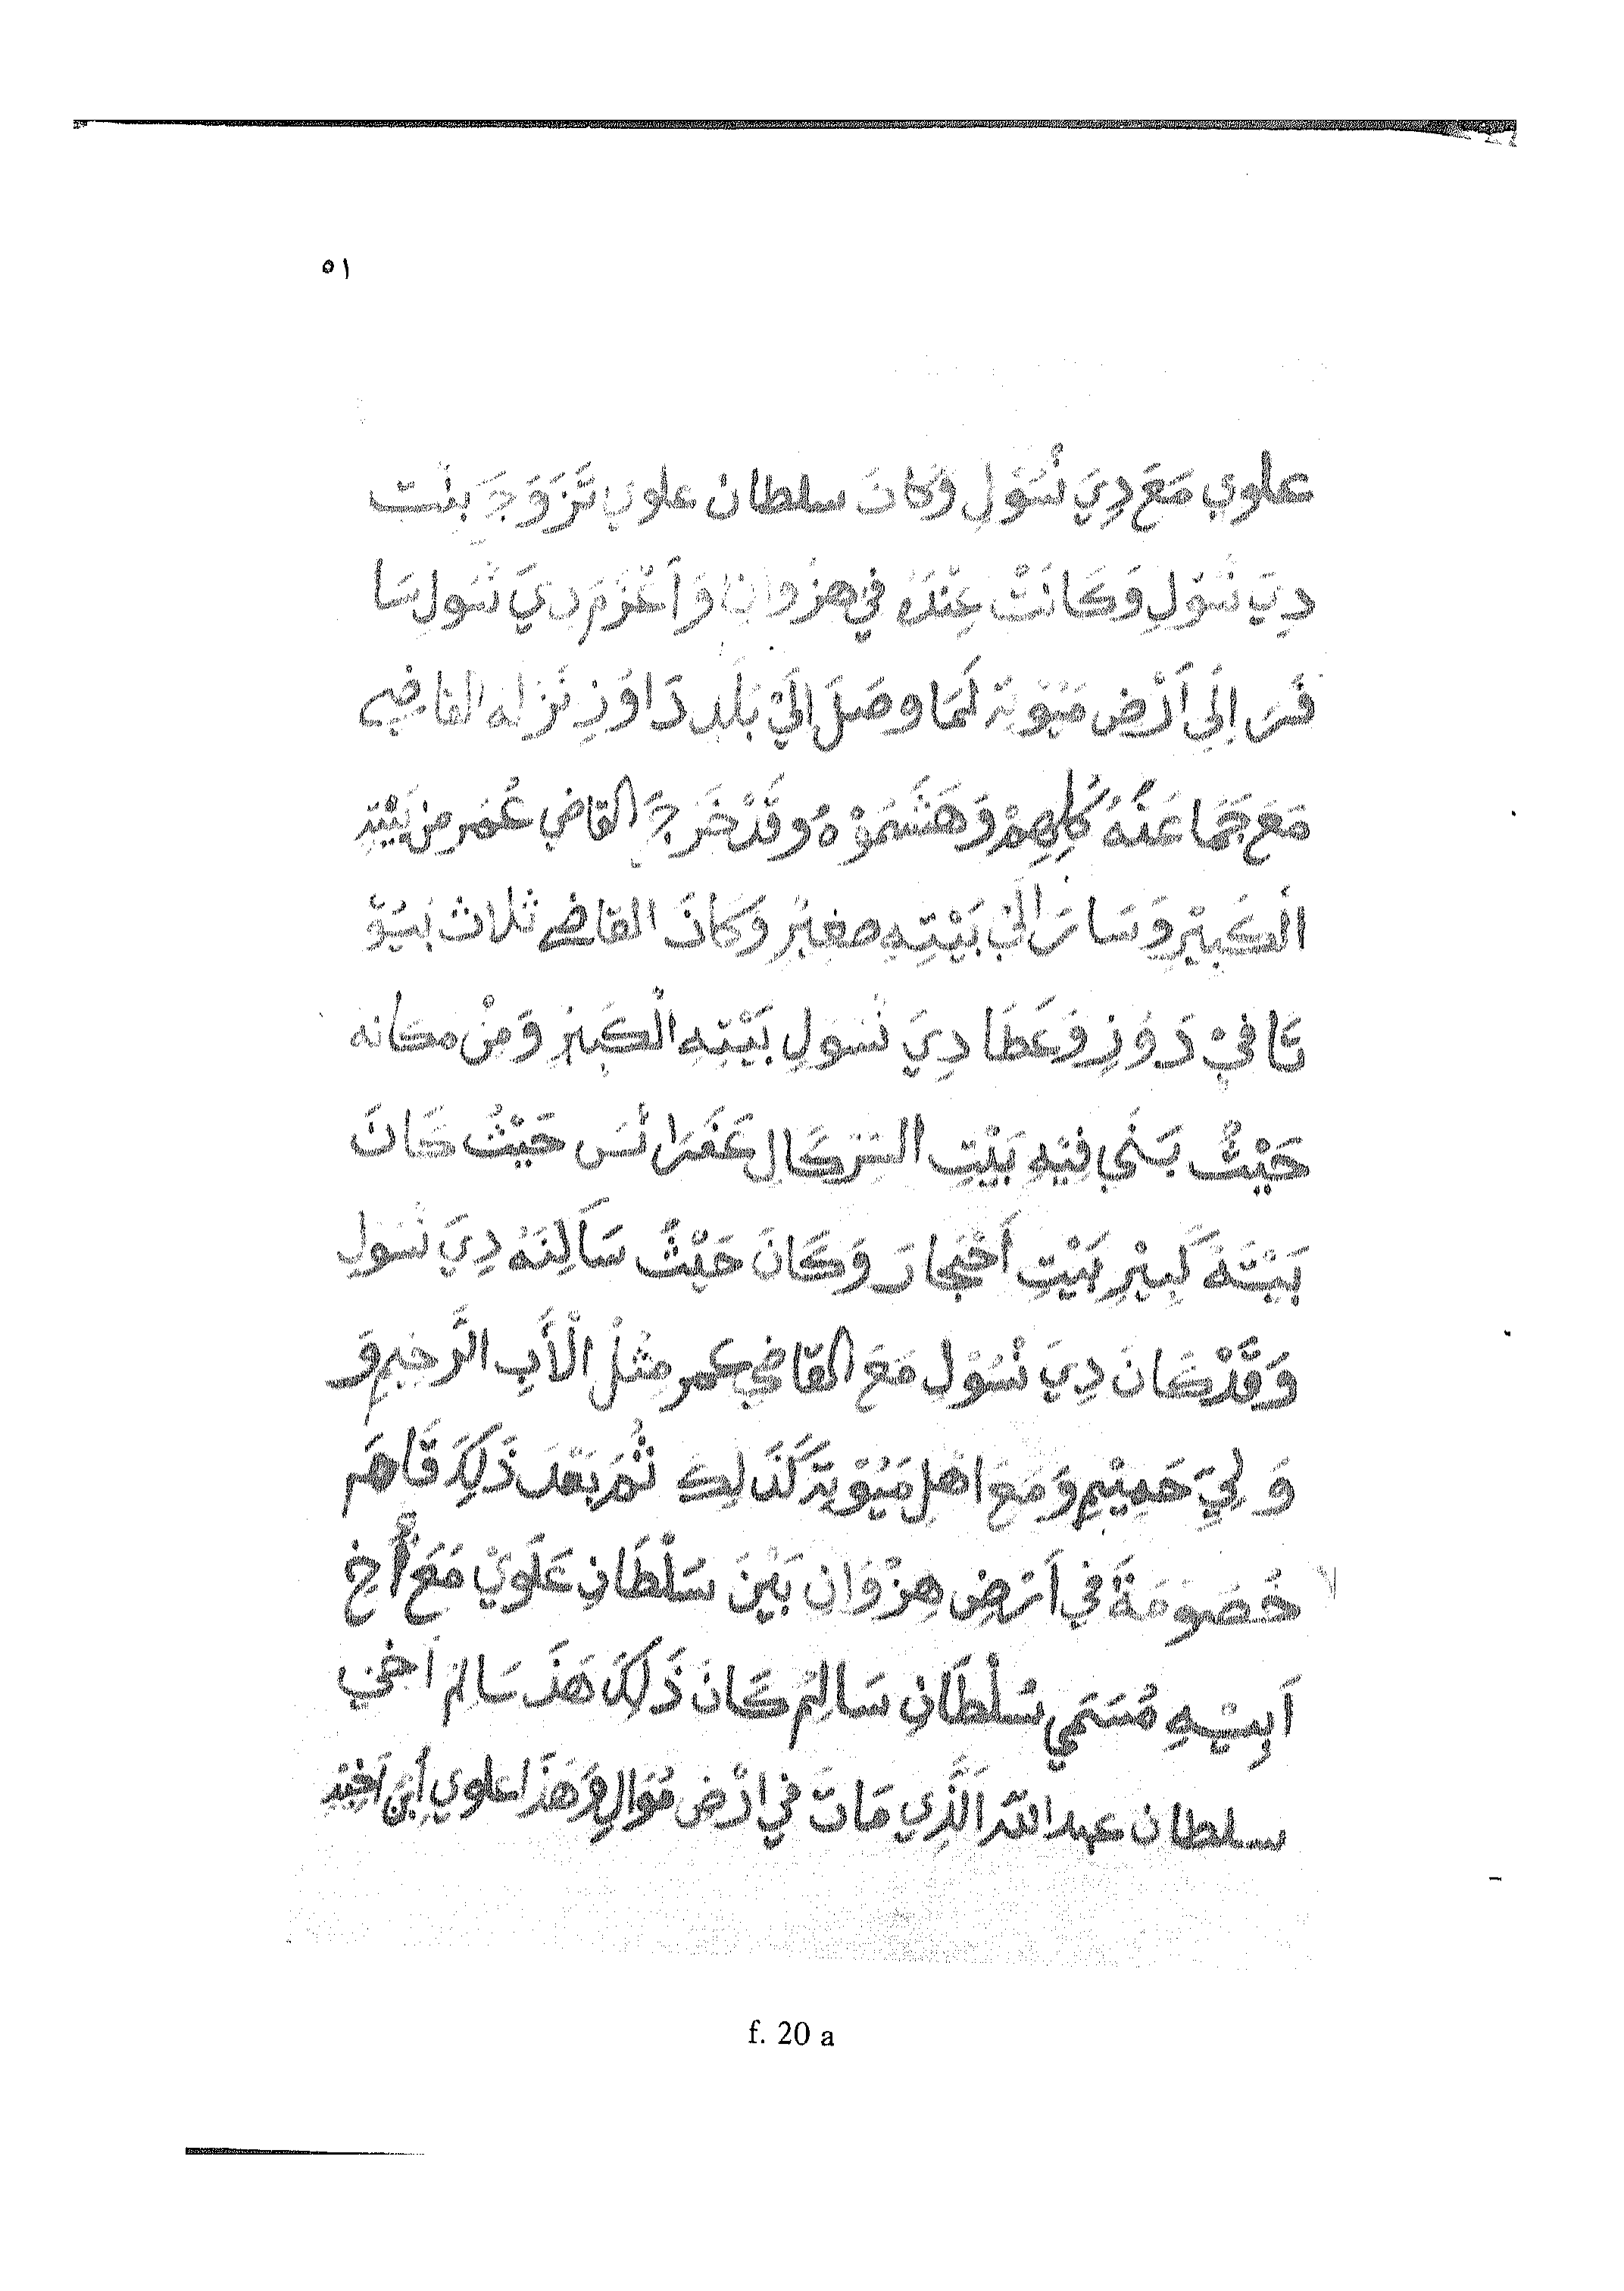 ٥١
علوي مَعَ دِيَ نْسُوْلِ وَكَانَ سلطان علوي تَزَوَّجَ بِنْت
دِيَ نْسُوْلِ وَكَانَتْ عِنْدَهُ في هِزْوَانِ وَاَعْزَمَ دِيَ نْسُولِ سَا
فَرَ اِلَى اَرْضِ مَيُوْتَة لَمَا وصَلَ اِلَيْ بَلَدِ دَاوُزِ نَزَلَهُ القاضي
مَعَ جَمَاعَتُهُ كُلِهِمْ وَهَشَمُوْهُ وَقَدْ خَرَجَ القاضي عُمَر مِنْ بَيْتِهِ
الْكَبِيْرِ وَسَارَ اِلَيْ بَيْتِهِ صغيرُ وَكَانَ القاضي ثلاث بُيُوْ
تَا فِيْ دَوُزِ وَعَطَا دِيَ نْسُولِ بَيْتِهِ الْكَبِيْرِ وَمِنْ مكانه
حَيْثُ بَنَي فِيْهِ بَيْتِ السَّرْكَالِ عَفَرَانْسَ حَيْثُ كَانَ
بَيْتَهُ كَبِيْرِ بَيْتِ اَحْجَارَ وَكَانَ حَيْثُ سَاكِنَهُ دِيَ نْسُولِ
وَقَدْ كَانَ دِيَ نْسُوْلِ مَعَ القاضي عمر مِثْلُ الْأَبِ الرَّحِيمِ وَ
وَلِيَ حَمِيْمٍ وَمَعَ اهْلِ مَيُوْتَة كَذَالِكَ ثُمَ بَعْدَ ذَلِكَ قَاهَم
خُصُوْمَةً فِي اَرْضِ هِزْوَانِ بَيْنَ سُلْطَانِ عَلَوِيْ مَعَ أَخِ
اَبِيْهِ مُسَمَي سُلْطَانِ سَالِمِ كَانَ ذَلِكَ هَذَ سَالِم اَخي
سلطان عبد الله الَّذِي مَاتَ فِي اَرْضِ مُوَالِ وَهَذَا علوي اِبْنَ اَخِيْهِ
f. 20 a